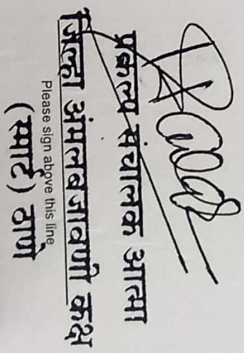 प्रकल्प संचालक आत्मा
जिल्हा अंमलबजावणी कक्ष
Please sign above this line
(स्मार्ट) ठाणे